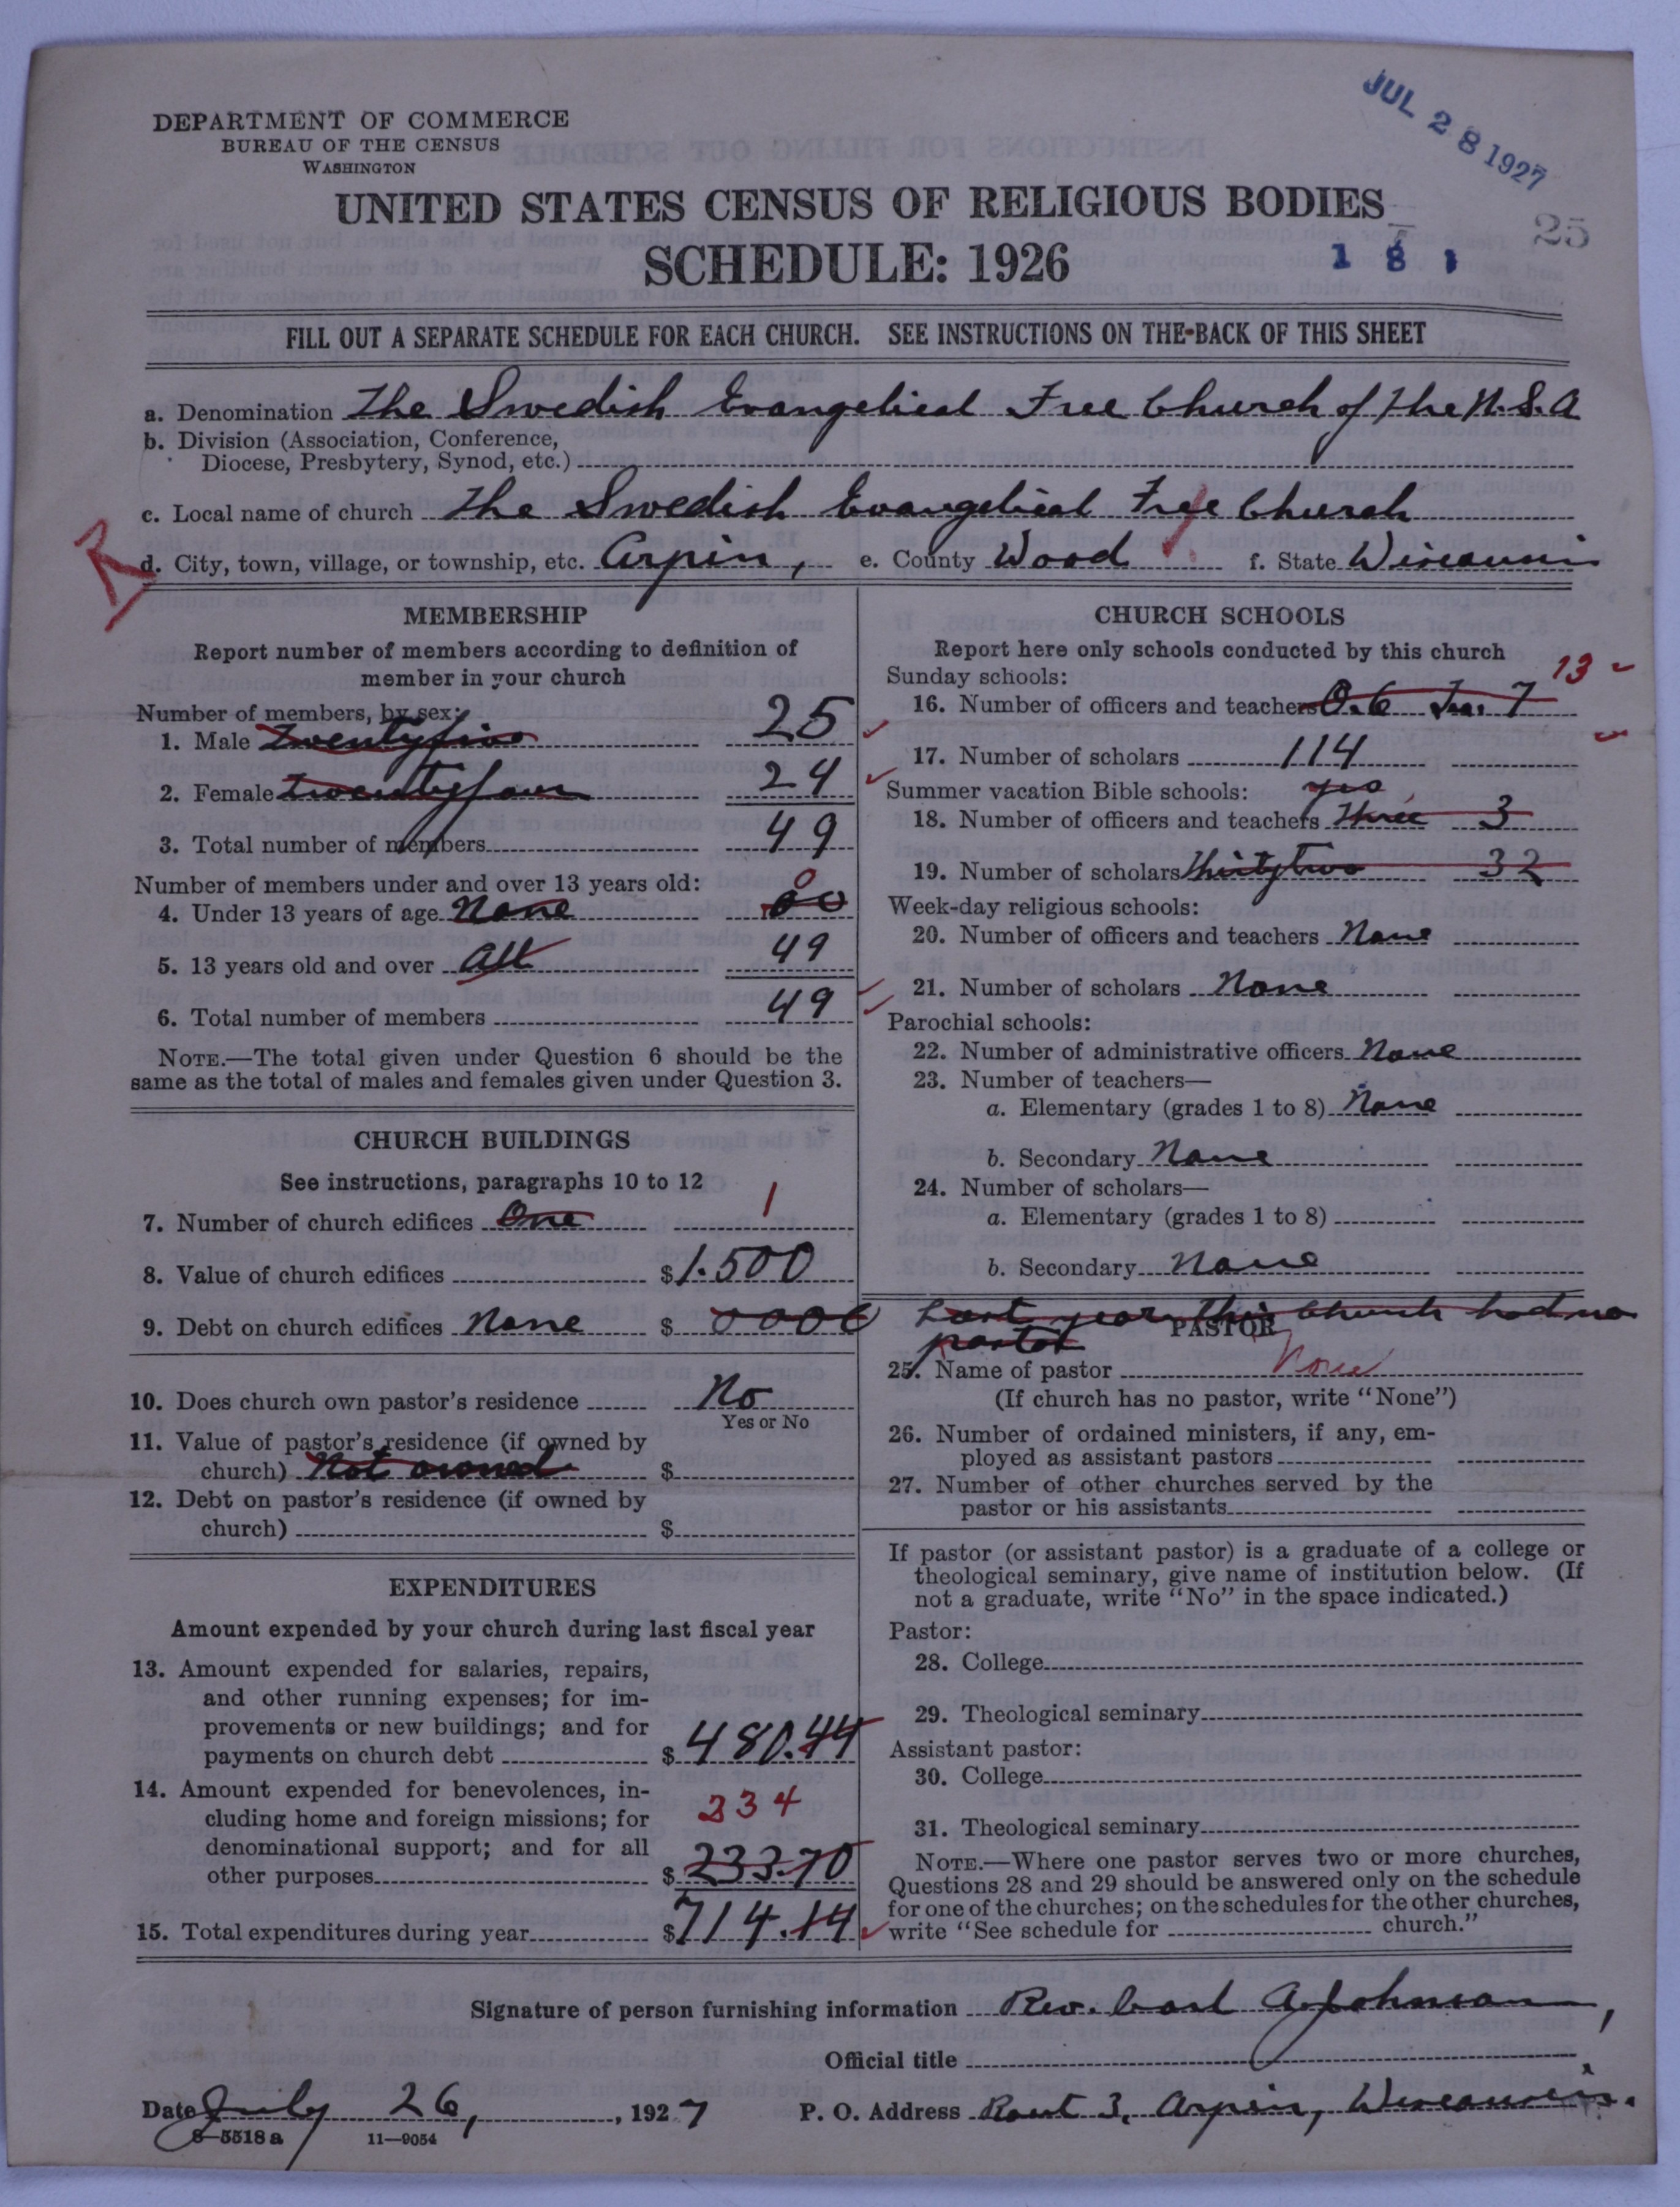 JUL 28 1927
DEPARTMENT OF COMMERCE
BUREAU OF THE CENSUS
WASHINGTON
UNITED STATES CENSUS OF RELIGIOUS BODIES
25
SCHEDULE: 1926
1 8 1
FILL OUT A SEPARATE SCHEDULE FOR EACH CHURCH. SEE INSTRUCTIONS ON THE BACK OF THIS SHEET
a. Denomination The Swedish Evangelical Free Church of the U.S.A
b. Division (Association, Conference,
Diocese, Presbytery, Synod, etc.)
c. Local name of church The Swedish Evangelical Free Church
d. City, town, village, or township, etc. Arpin, e. County Wood f. State Wisconsin
MEMBERSHIP
Report number of members according to definition of
member in your church
Number of members, by sex:
1. Male twentyfive 25
2. Female twentyfour 24
3. Total number of members 49
Number of members under and over 13 years old:
4. Under 13 years of age None 00 0
5. 13 years old and over All 49
6. Total number of members 49
NOTE.—The total given under Question 6 should be the
same as the total of males and females given under Question 3.
CHURCH BUILDINGS
See instructions, paragraphs 10 to 12
7. Number of church edifices One 1
8. Value of church edifices $1.500
9. Debt on church edifices None $ 0000
10. Does church own pastor's residence No
Yes or No
11. Value of pastor's residence (if owned by
church) Not owned $
12. Debt on pastor's residence (if owned by
church) $
EXPENDITURES
Amount expended by your church during last fiscal year
13. Amount expended for salaries, repairs,
and other running expenses; for im-
provements or new buildings; and for
payments on church debt $ 480.44
14. Amount expended for benevolences, in-
cluding home and foreign missions; for 234
denominational support; and for all
other purposes $ 233.70
15. Total expenditures during year $714.14
CHURCH SCHOOLS
Report here only schools conducted by this church
Sunday schools: 13
16. Number of officers and teachers O. 6 Tea. 7
17. Number of scholars 114
Summer vacation Bible schools: yes
18. Number of officers and teachers Three 3
19. Number of scholars thirtytwo 32
Week-day religious schools:
20. Number of officers and teachers None
21. Number of scholars None
Parochial schools:
22. Number of administrative officers None
23. Number of teachers—
a. Elementary (grades 1 to 8) None
b. Secondary None
24. Number of scholars—
a. Elementary (grades 1 to 8)
b. Secondary None
Last year this Church had no
pastor
PASTOR
25. Name of pastor None
(If church has no pastor, write "None")
26. Number of ordained ministers, if any, em-
ployed as assistant pastors
27. Number of other churches served by the
pastor or his assistants
If pastor (or assistant pastor) is a graduate of a college or
theological seminary, give name of institution below. (If
not a graduate, write "No" in the space indicated.)
Pastor:
28. College
29. Theological seminary
Assistant pastor:
30. College
31. Theological seminary
NOTE.—Where one pastor serves two or more churches,
Questions 28 and 29 should be answered only on the schedule
for one of the churches; on the schedules for the other churches,
write "See schedule for church."
Signature of person furnishing information Rev. Carl A. Johnson,
Official title
Date July 26, , 1927 P. O. Address Rout 3, Arpin, Wisconsin.
8—5518 a 11—9054